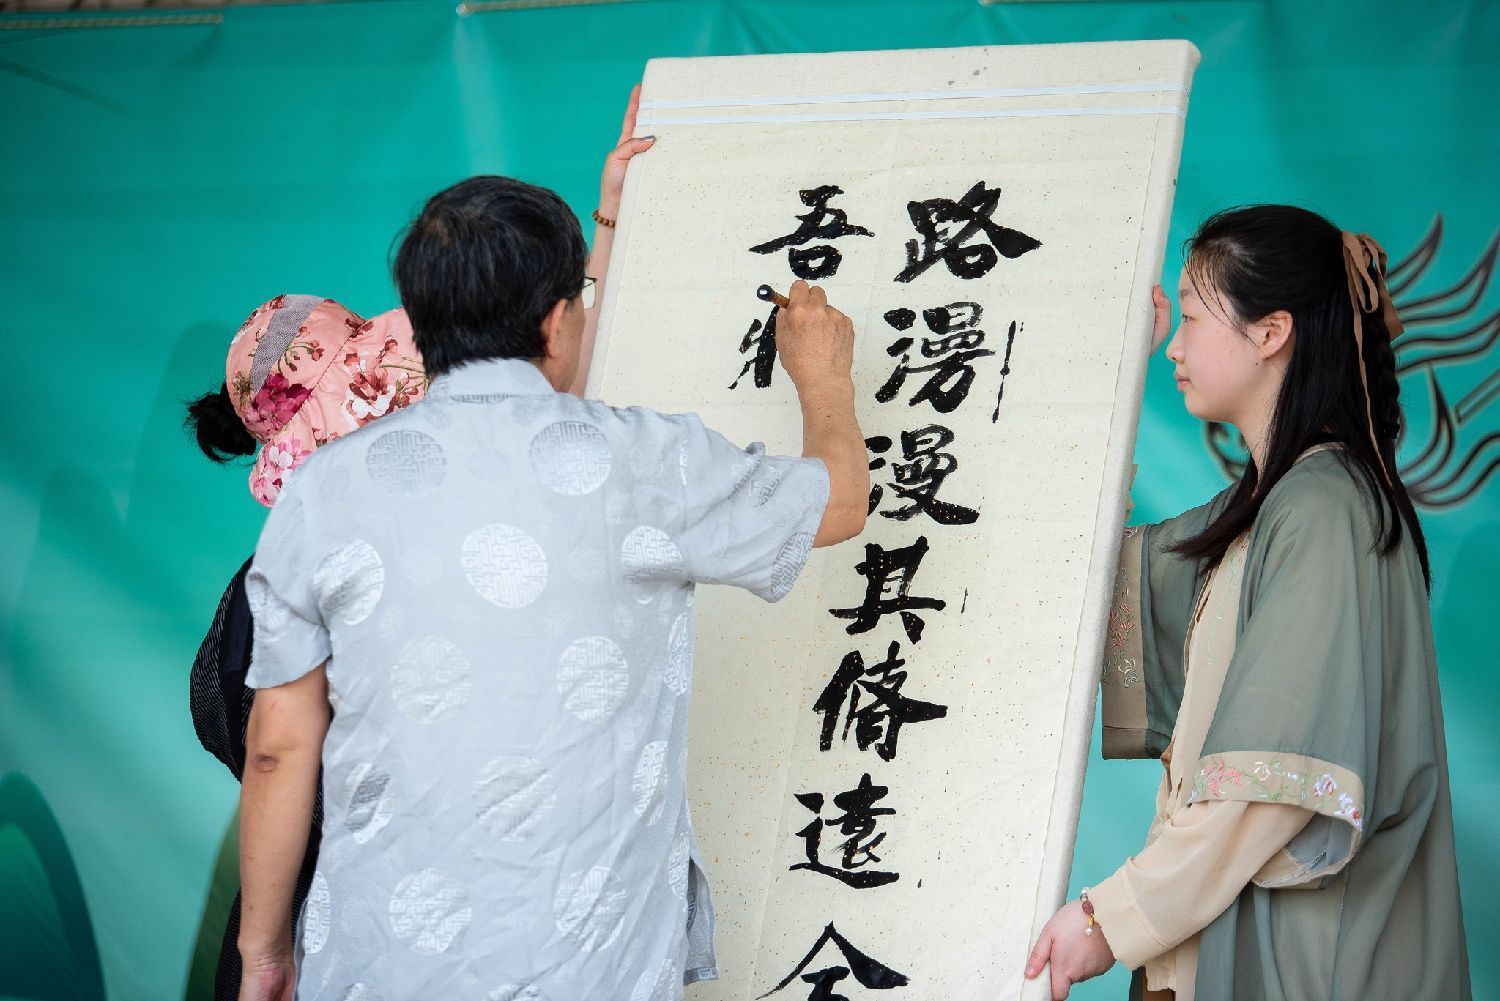 路漫漫其脩遠兮
吾